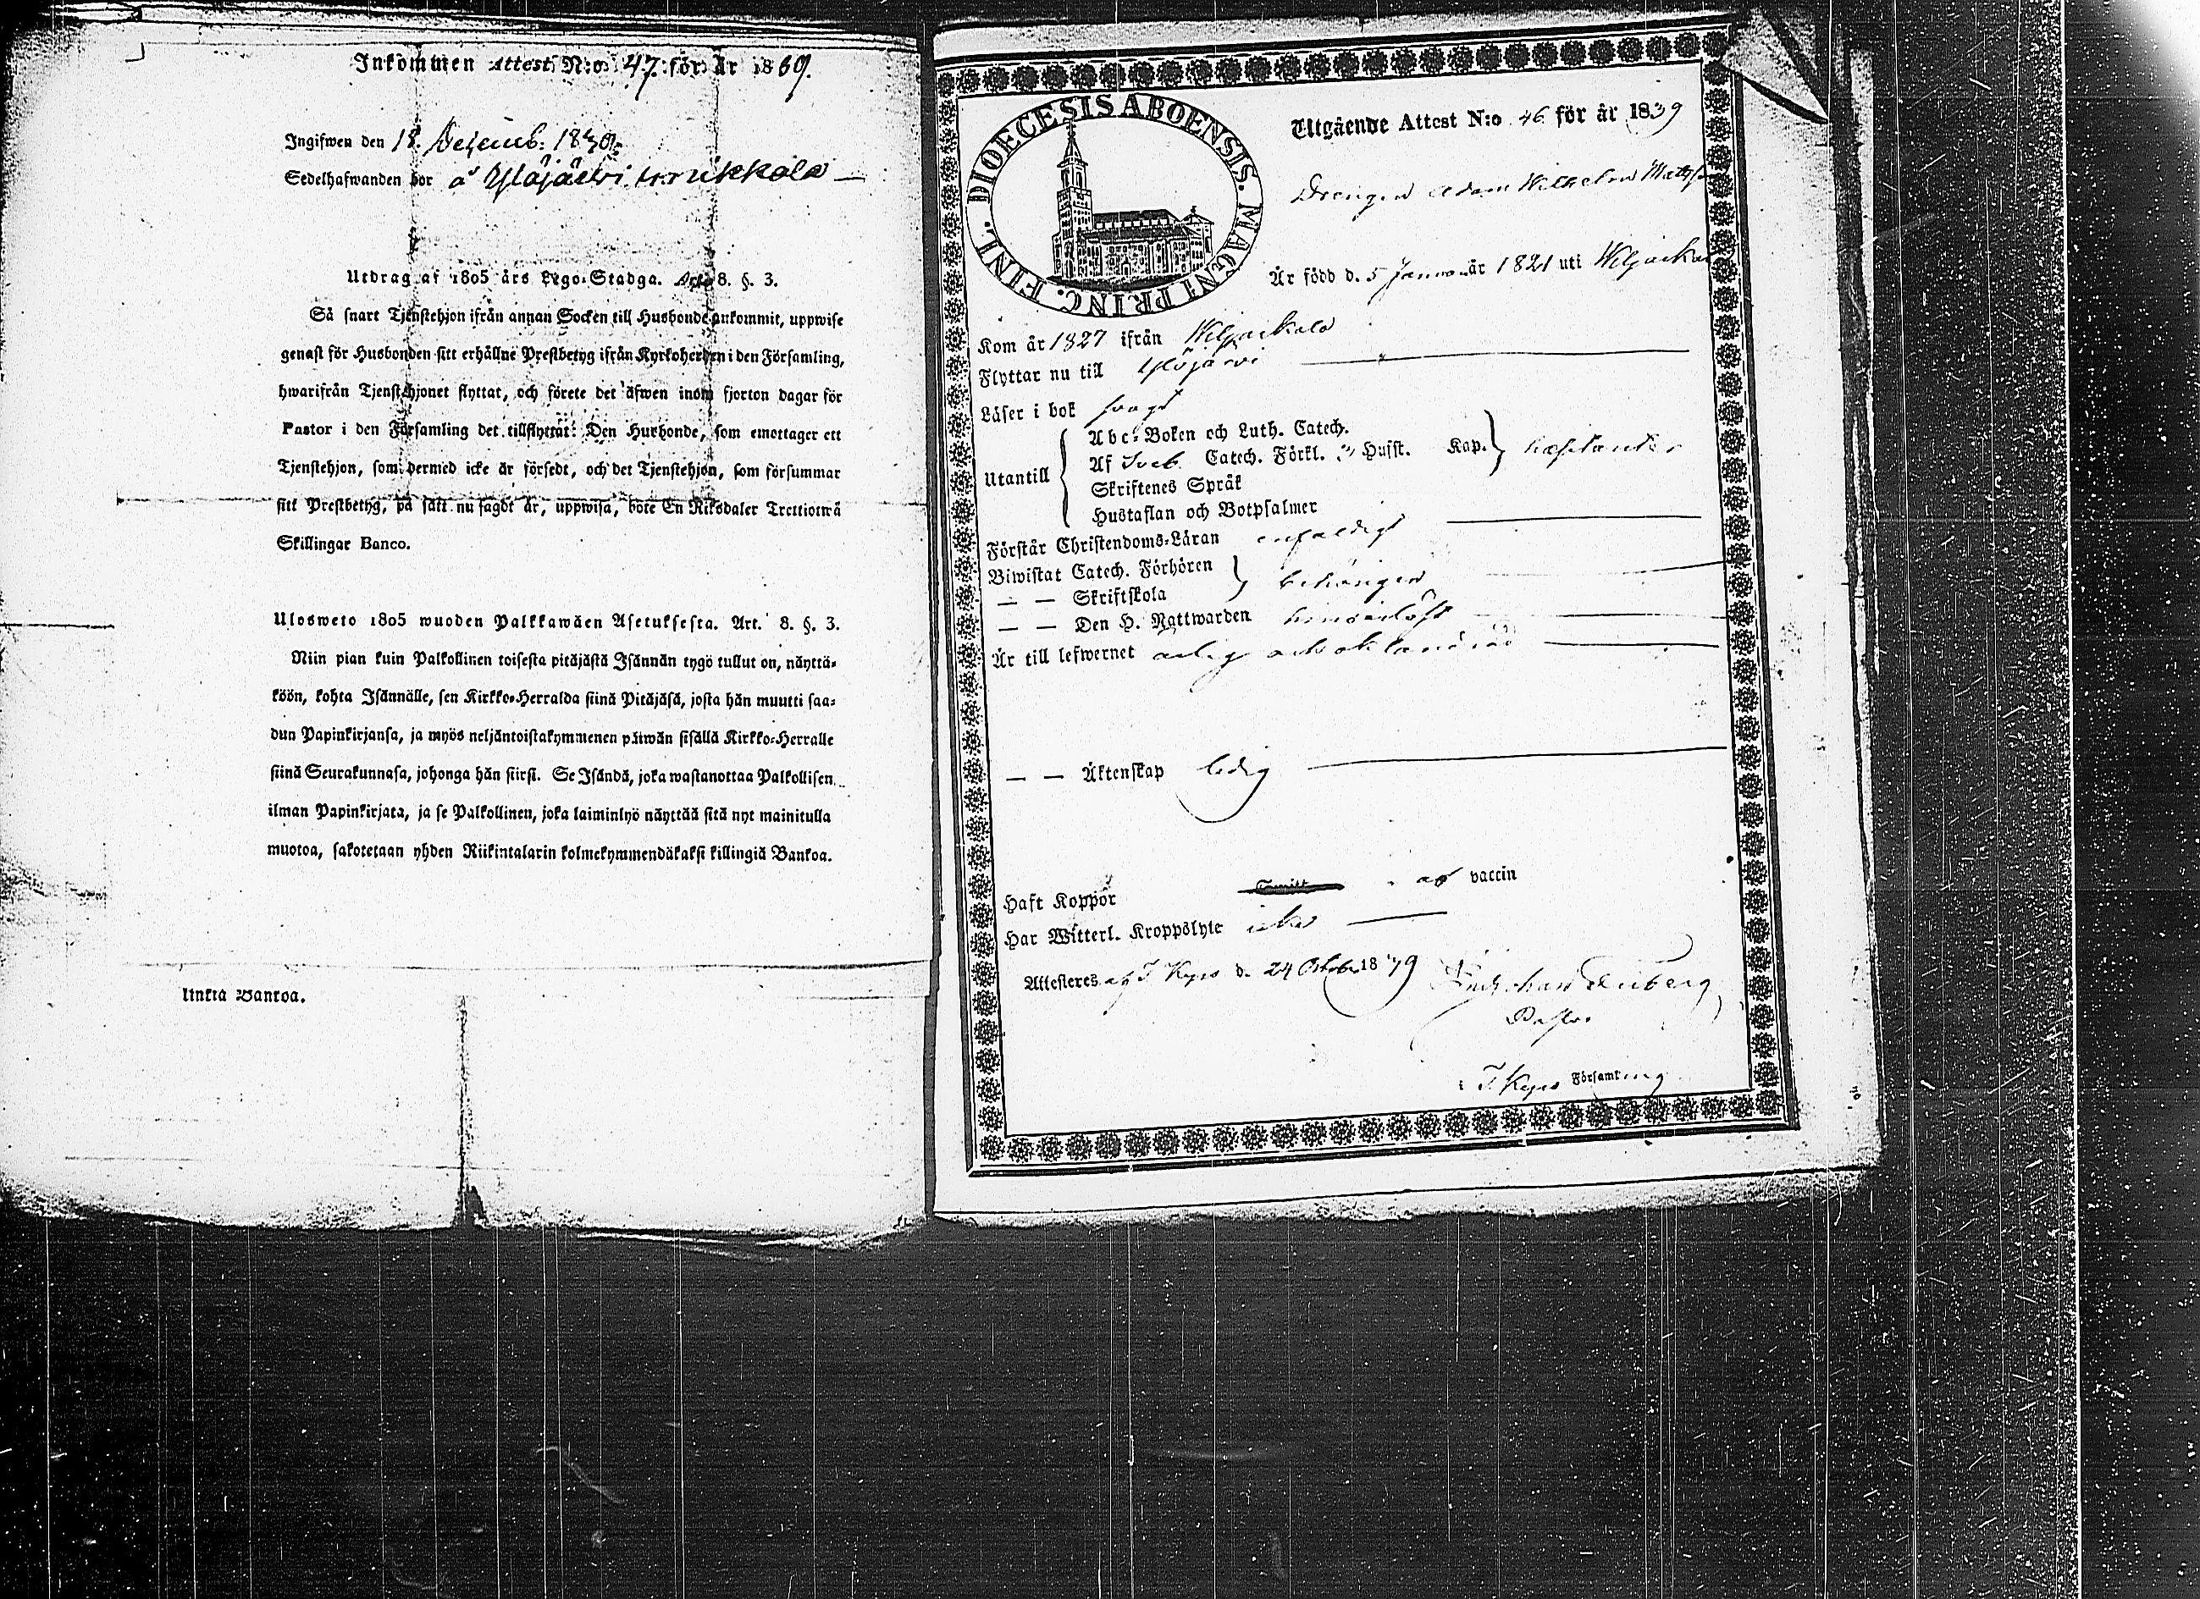 Inkommen Attest N:o 47. för År 1839.
Ingifwen den 18. Decemb: 1839.
Sedelhafwanden bor å Ylöjärwi
Utdrag af 1805 års Lego-Stadga. Art. 8. §. 3.
Så snart Tjenstehjon ifrån annan Socken till Husbonde ankommit, uppwise
genast för Husbonden sitt erhållne Prestbetyg ifrån Kyrkoherden i den Församling,
hwarifrån Tjenstehjonet flyttat, och förete det äfwen inom fjorton dagar för
Pastor i den Församling det tillflyttat: Den Husbonde, som emottager ett
Tjenstehjon, som dermed icke är försedt, och det Tjenstehjon, som försummar
sitt Prestbetyg, på sätt nu sagdt är, uppwisa, böte En Riksdaler Trettiotwå
Skillingar Banco.
Ulosweto 1805 wuoden Palkkawäen Asetuksesta. Art. 8. §. 3.
Niin pian kuin Palkollinen toisesta pitäjästä Isännän tygö tullut on, näyttä-
köön, kohta Isännälle, sen Kirkko-Herralda siinä Pitäjäsä, josta hän muutti saa-
dun Papinkirjansa, ja myös neljäntoistakymmenen päiwän sisällä Kirkko-Herralle
siinä Seurakunnasa, johonga hän siirsi. Se Isändä, joka wastanottaa Palkollisen
ilman Papinkirjata, ja se Palkollinen, joka laiminlyö näyttää sitä nyt mainitulla
muotoa, sakotetaan yhden Riikintalarin kolmekymmendäkaksi killingiä Bankoa.
linkiä Bankoa.
DIOECESIS ABOENSIS. MAGNI PRINC. FINL.
Utgående Attest N:o 46 för år 1839
Drengen Adam Wilhelm Matts
Är född d. 5 Januari år 1821 uti Wiljakkala
Kom år 1827 ifrån Wiljakkala
Flyttar nu till Ylöjärwi
Läser i bok svagt
Utantill
Abc-Boken och Luth. Catech.
Af Sveb. Catech. Förkl. Husst. Kap.
Skriftenes Språk
Hustaflan och Botpsalmer
Förstår Christendoms-Läran enfaldigt
Biwistat Catech. Förhören
— — Skriftskola
behörigen
— — Den H. Nattwarden hinderlöst
Är till lefwernet ärlig och oklandrad
— — Äktenskap ledig
Haft Koppor af vaccin
Har Witterl. Kroppslyte icke
Attesteres af T. Kyro d. 24 October 1839
Pastor
T. Kyro Församling